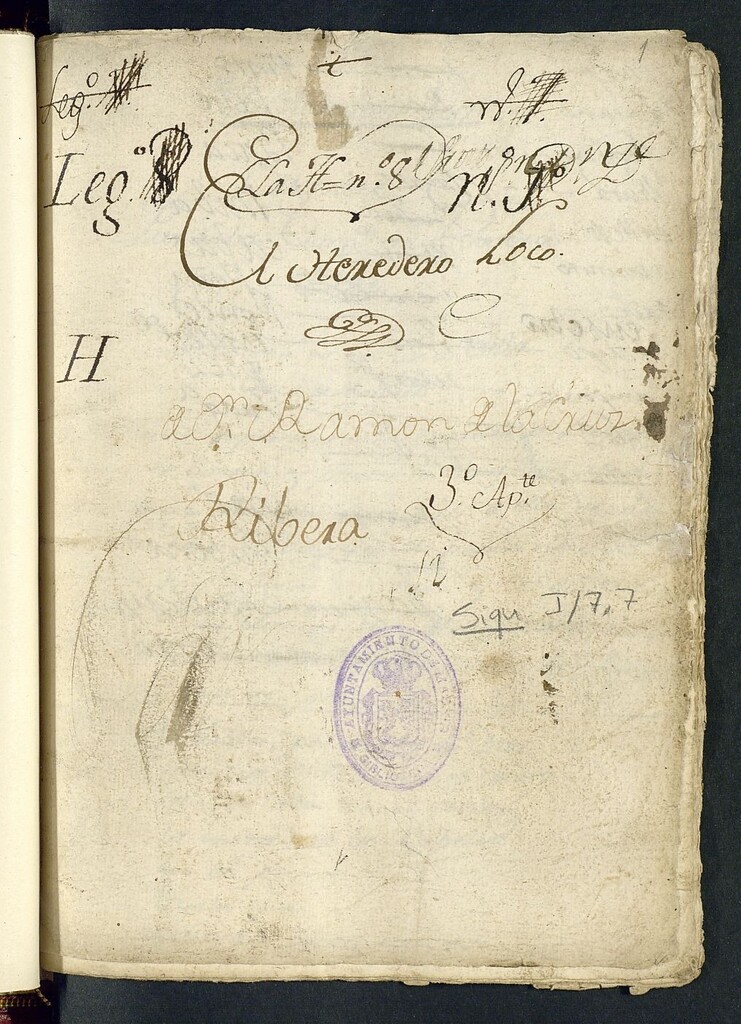 1
Leg.º
Leg.º
La H=n.º 8
N.
El Heredero Loco.
H
de Dn. Ramon de la Cruz
Ribera
3.º Ap.te
Sign I/7,7
AYUNTAMIENTO DE
BIBLIO